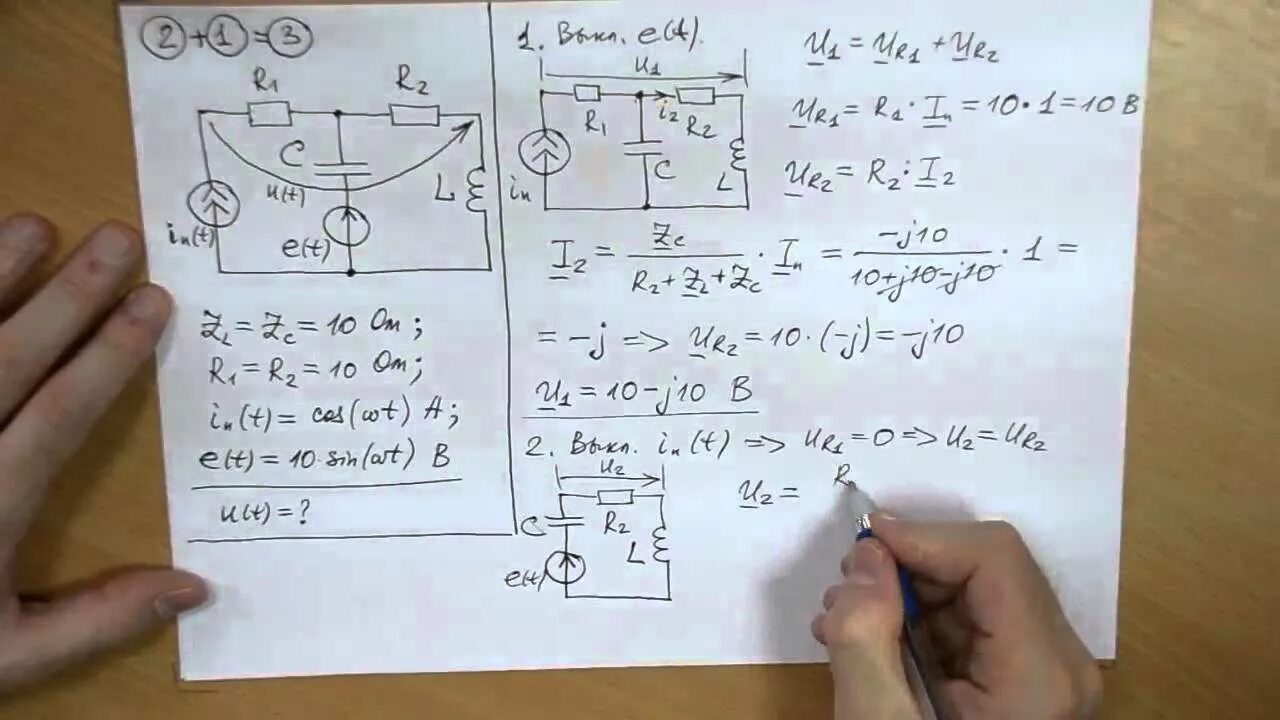 2 + 1 = 3
R1
R2
C
u(t)
L
iп(t)
e(t)
ZL = ZC = 10 Ом;
R1 = R2 = 10 Ом;
iп(t) = cos(ωt) А;
e(t) = 10·sin(ωt) В
u(t) = ?
1. Выкл. e(t).
U1
R1
i2
R2
C
L
iп
U1 = UR1 + UR2
UR1 = R1 · Iп = 10 · 1 = 10 В
UR2 = R2 · I2
I2 = ZC / (R2 + ZL + ZC) · Iп = -j10 / (10+j10-j10) · 1 =
= -j => UR2 = 10 · (-j) = -j10
U1 = 10 - j10 В
2. Выкл. iп(t) => UR1 = 0 => U2 = UR2
U2
C
R2
L
e(t)
U2 = R